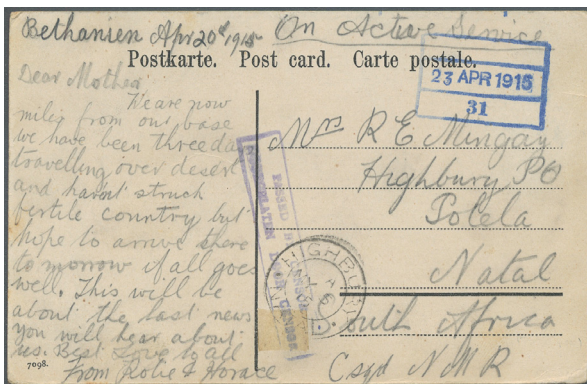 Bethanien Apr 20th 1915
On Active Service
Postkarte. Post card. Carte postale.
23 APR 1915
31
Dear Mother
We are now
miles from our base
we have been three da
travelling over desert
and havnt struck
fertile country but
hope to arrive there
tomorrow if all goes
well. This will be
about the last news
you will hear about
us. Best Love to all
From Rolie & Horace
Mrs R E Mingay
Highbury PO
Polela
Natal
South Africa
Csqd N M R.
PASSED
HIGHBURY
7098.